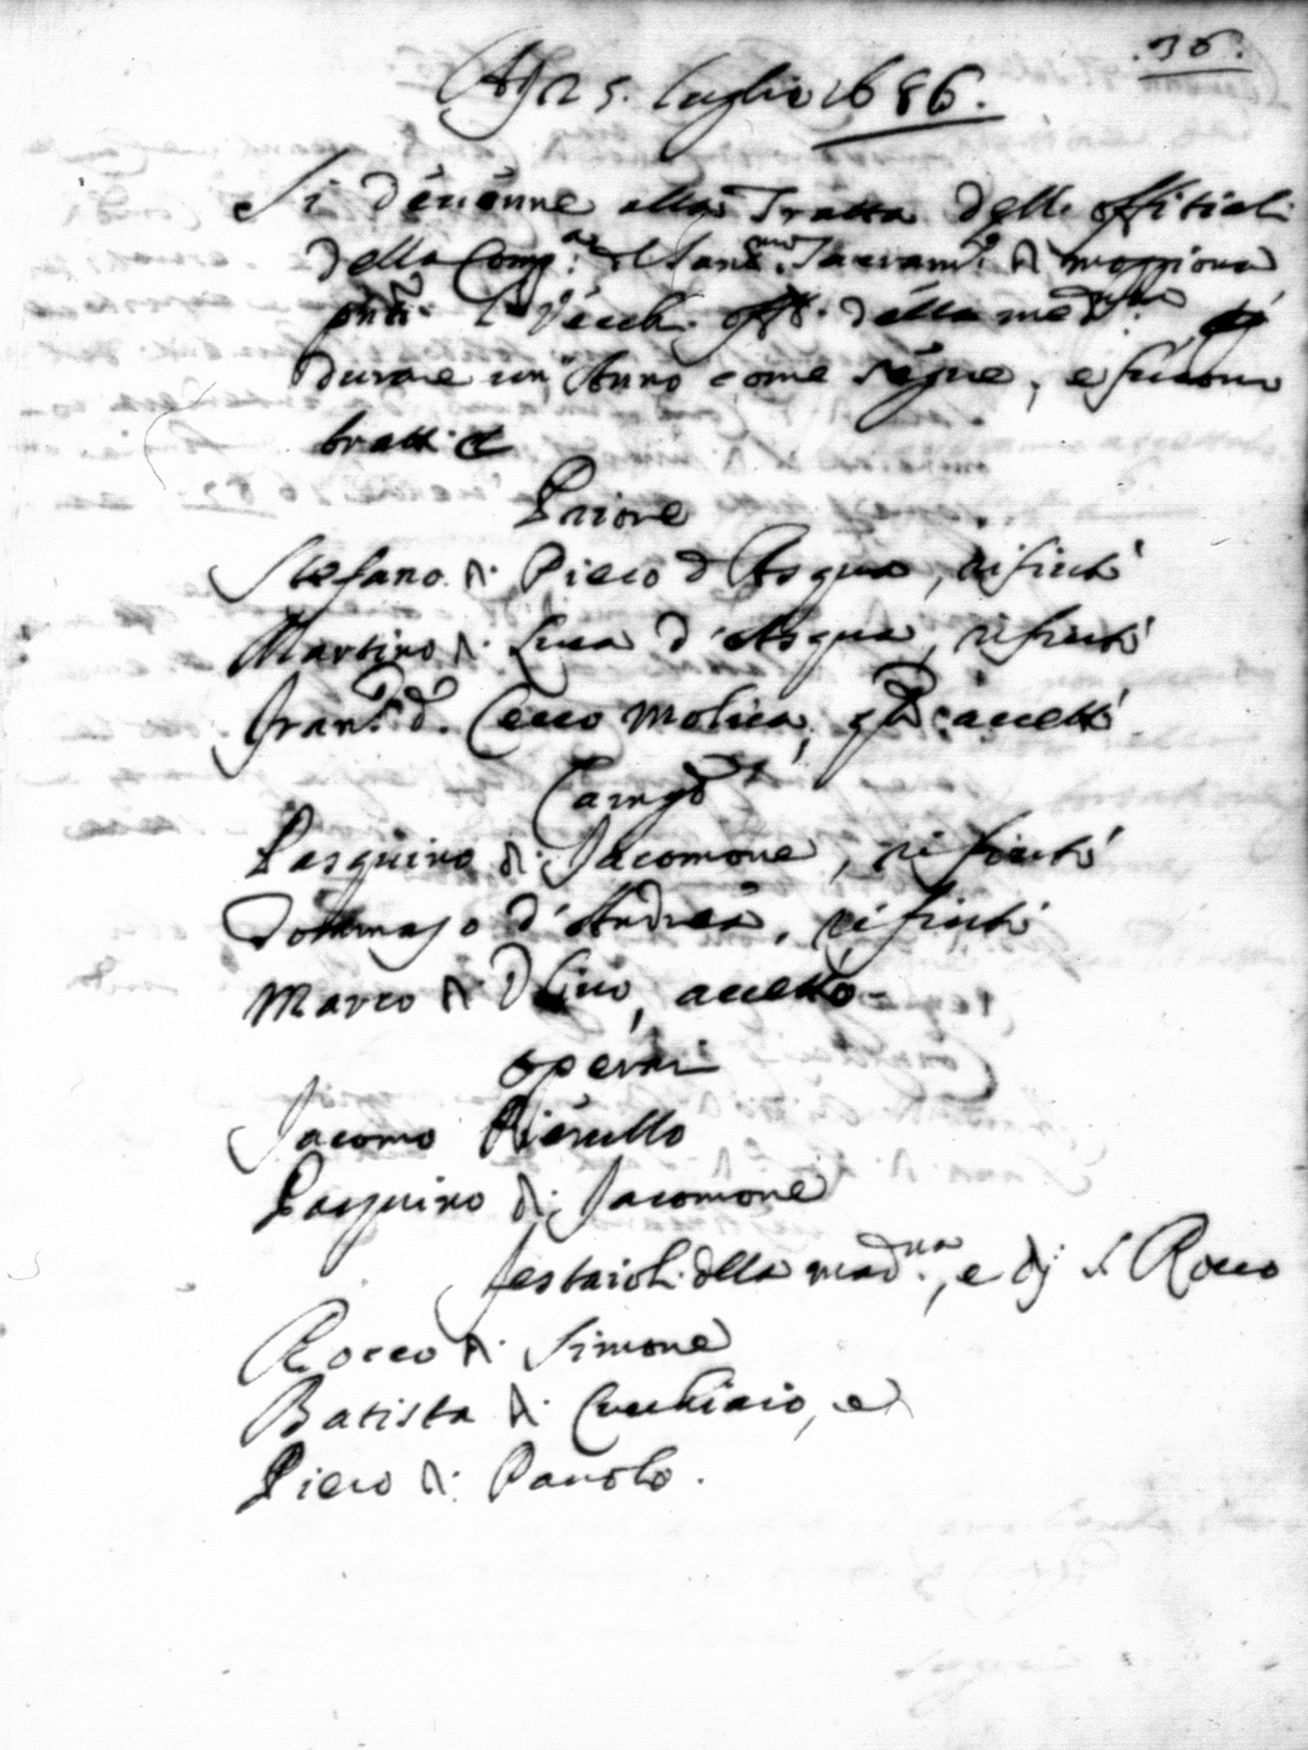 .36.
Adi 25. luglio 1686.
Si devenne alla Tratta delli offitiali
della Comp.a del Sant.mo Sacram.to di moggiona
p.nti li Vecchi off.li della med.ma
durare un'Anno come segue, e furono
tratti
Priore
Stefano di Piero d'Asqua, rifiutò
Martino di Luca d'Asqua, rifiutò
Fran.co di Cecco Molica, accettò
Camg.o
Pasquino di Jacomone, rifiutò
Tommaso d'Andrea, rifiutò
Marco di accettò
operai
Jacomo Pierullo
Pasquino di Jacomone
festaioli della mad.na, e di S Rocco
Rocco di Simone
Batista di Cucchiaio, e
Piero di Pavolo.